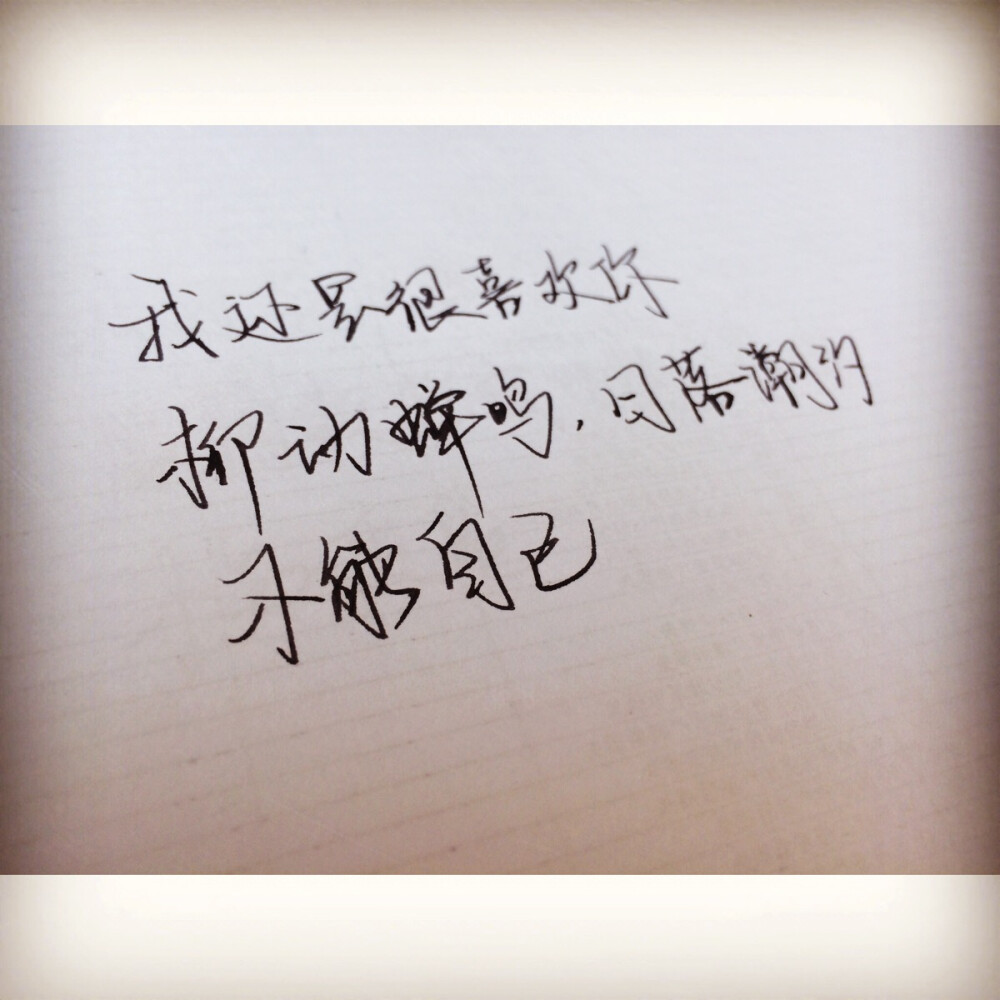 我还是很喜欢你
柳动蝉鸣，日落潮汐
不能自已